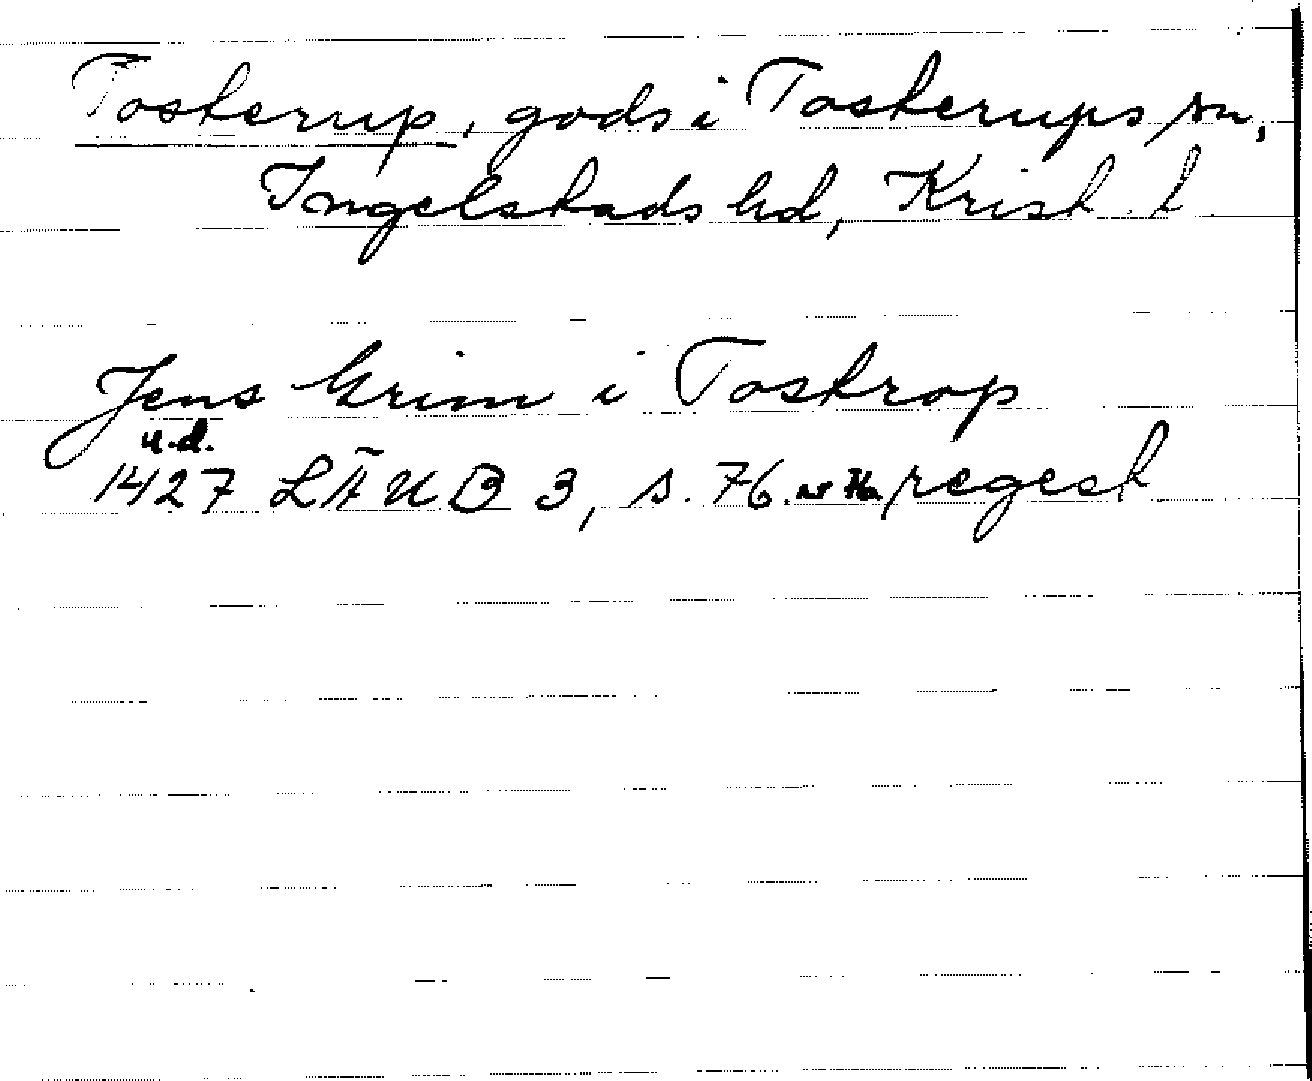 Tosterup, gods i Tosterups sn,
Ingelstads hd, Krist. l
Jens Grim i Tostrop
u.d.
1427 LÄUB 3, s. 76. nr regest